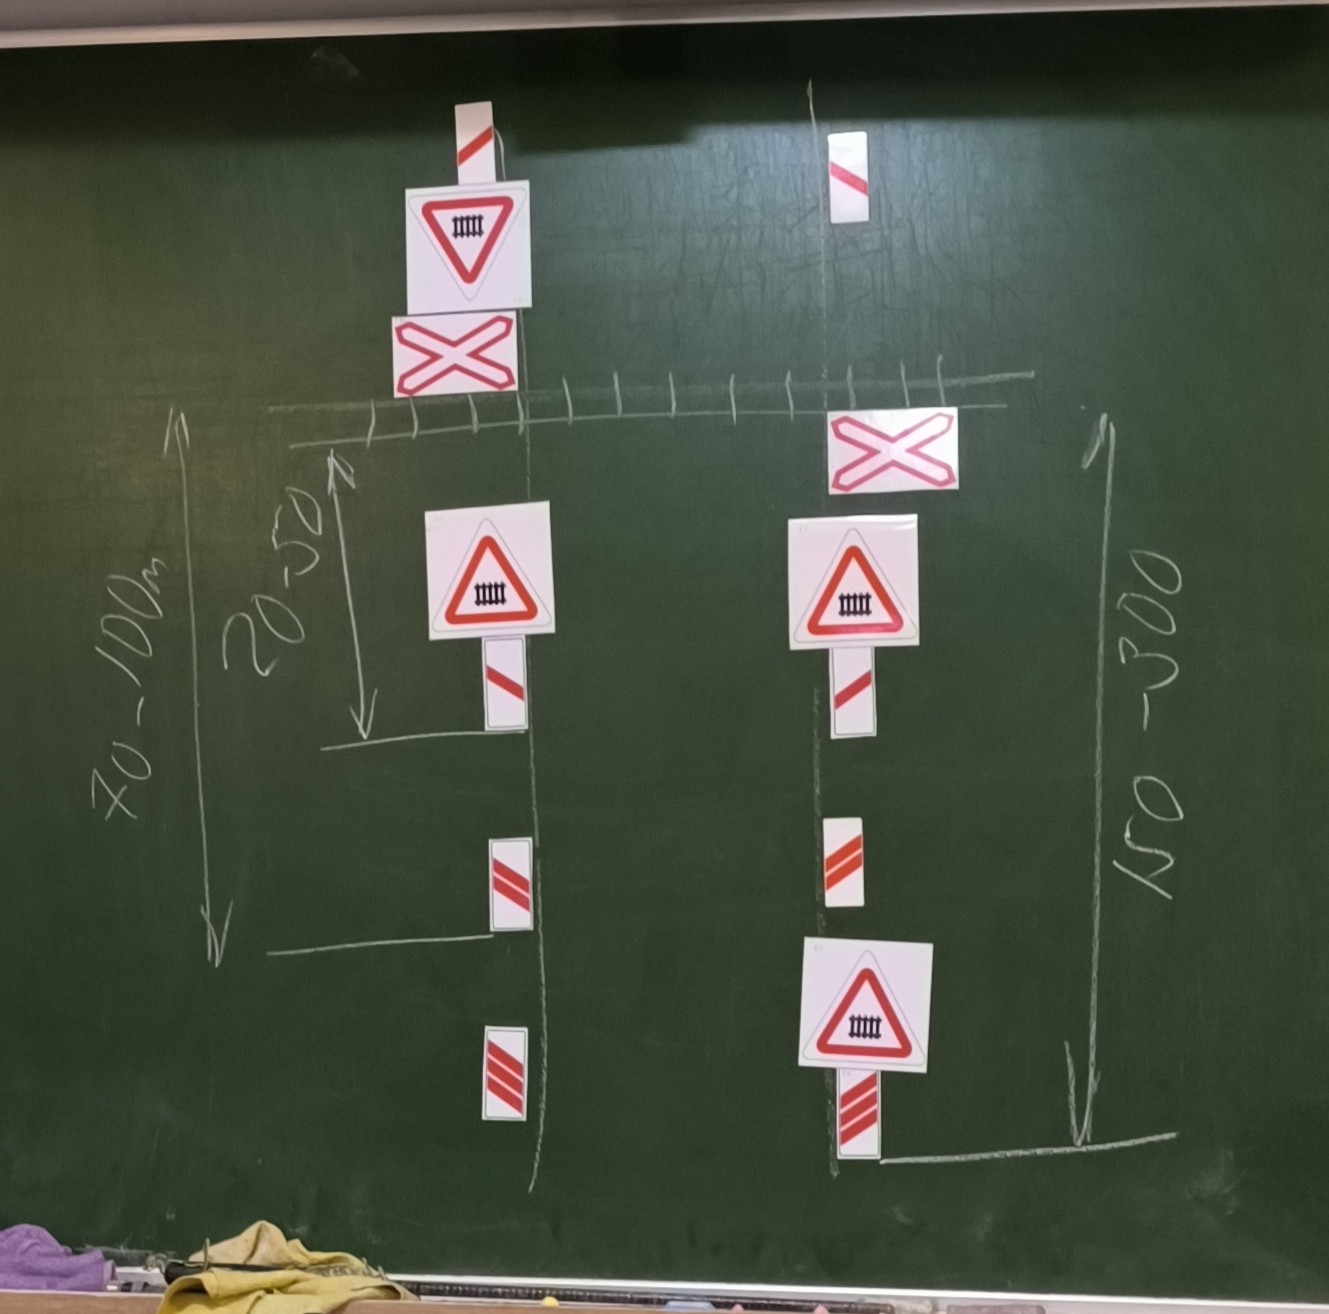 70-100m
20-50
150-300